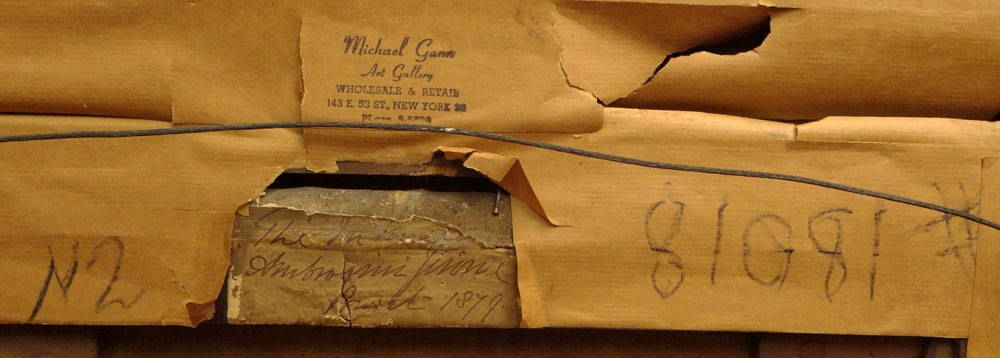 Michael Gann
Art Gallery
WHOLESALE & RETAIL
143 E. 53 ST., NEW YORK 22
The
Ambrosini Jérome
1879
N2
#18018